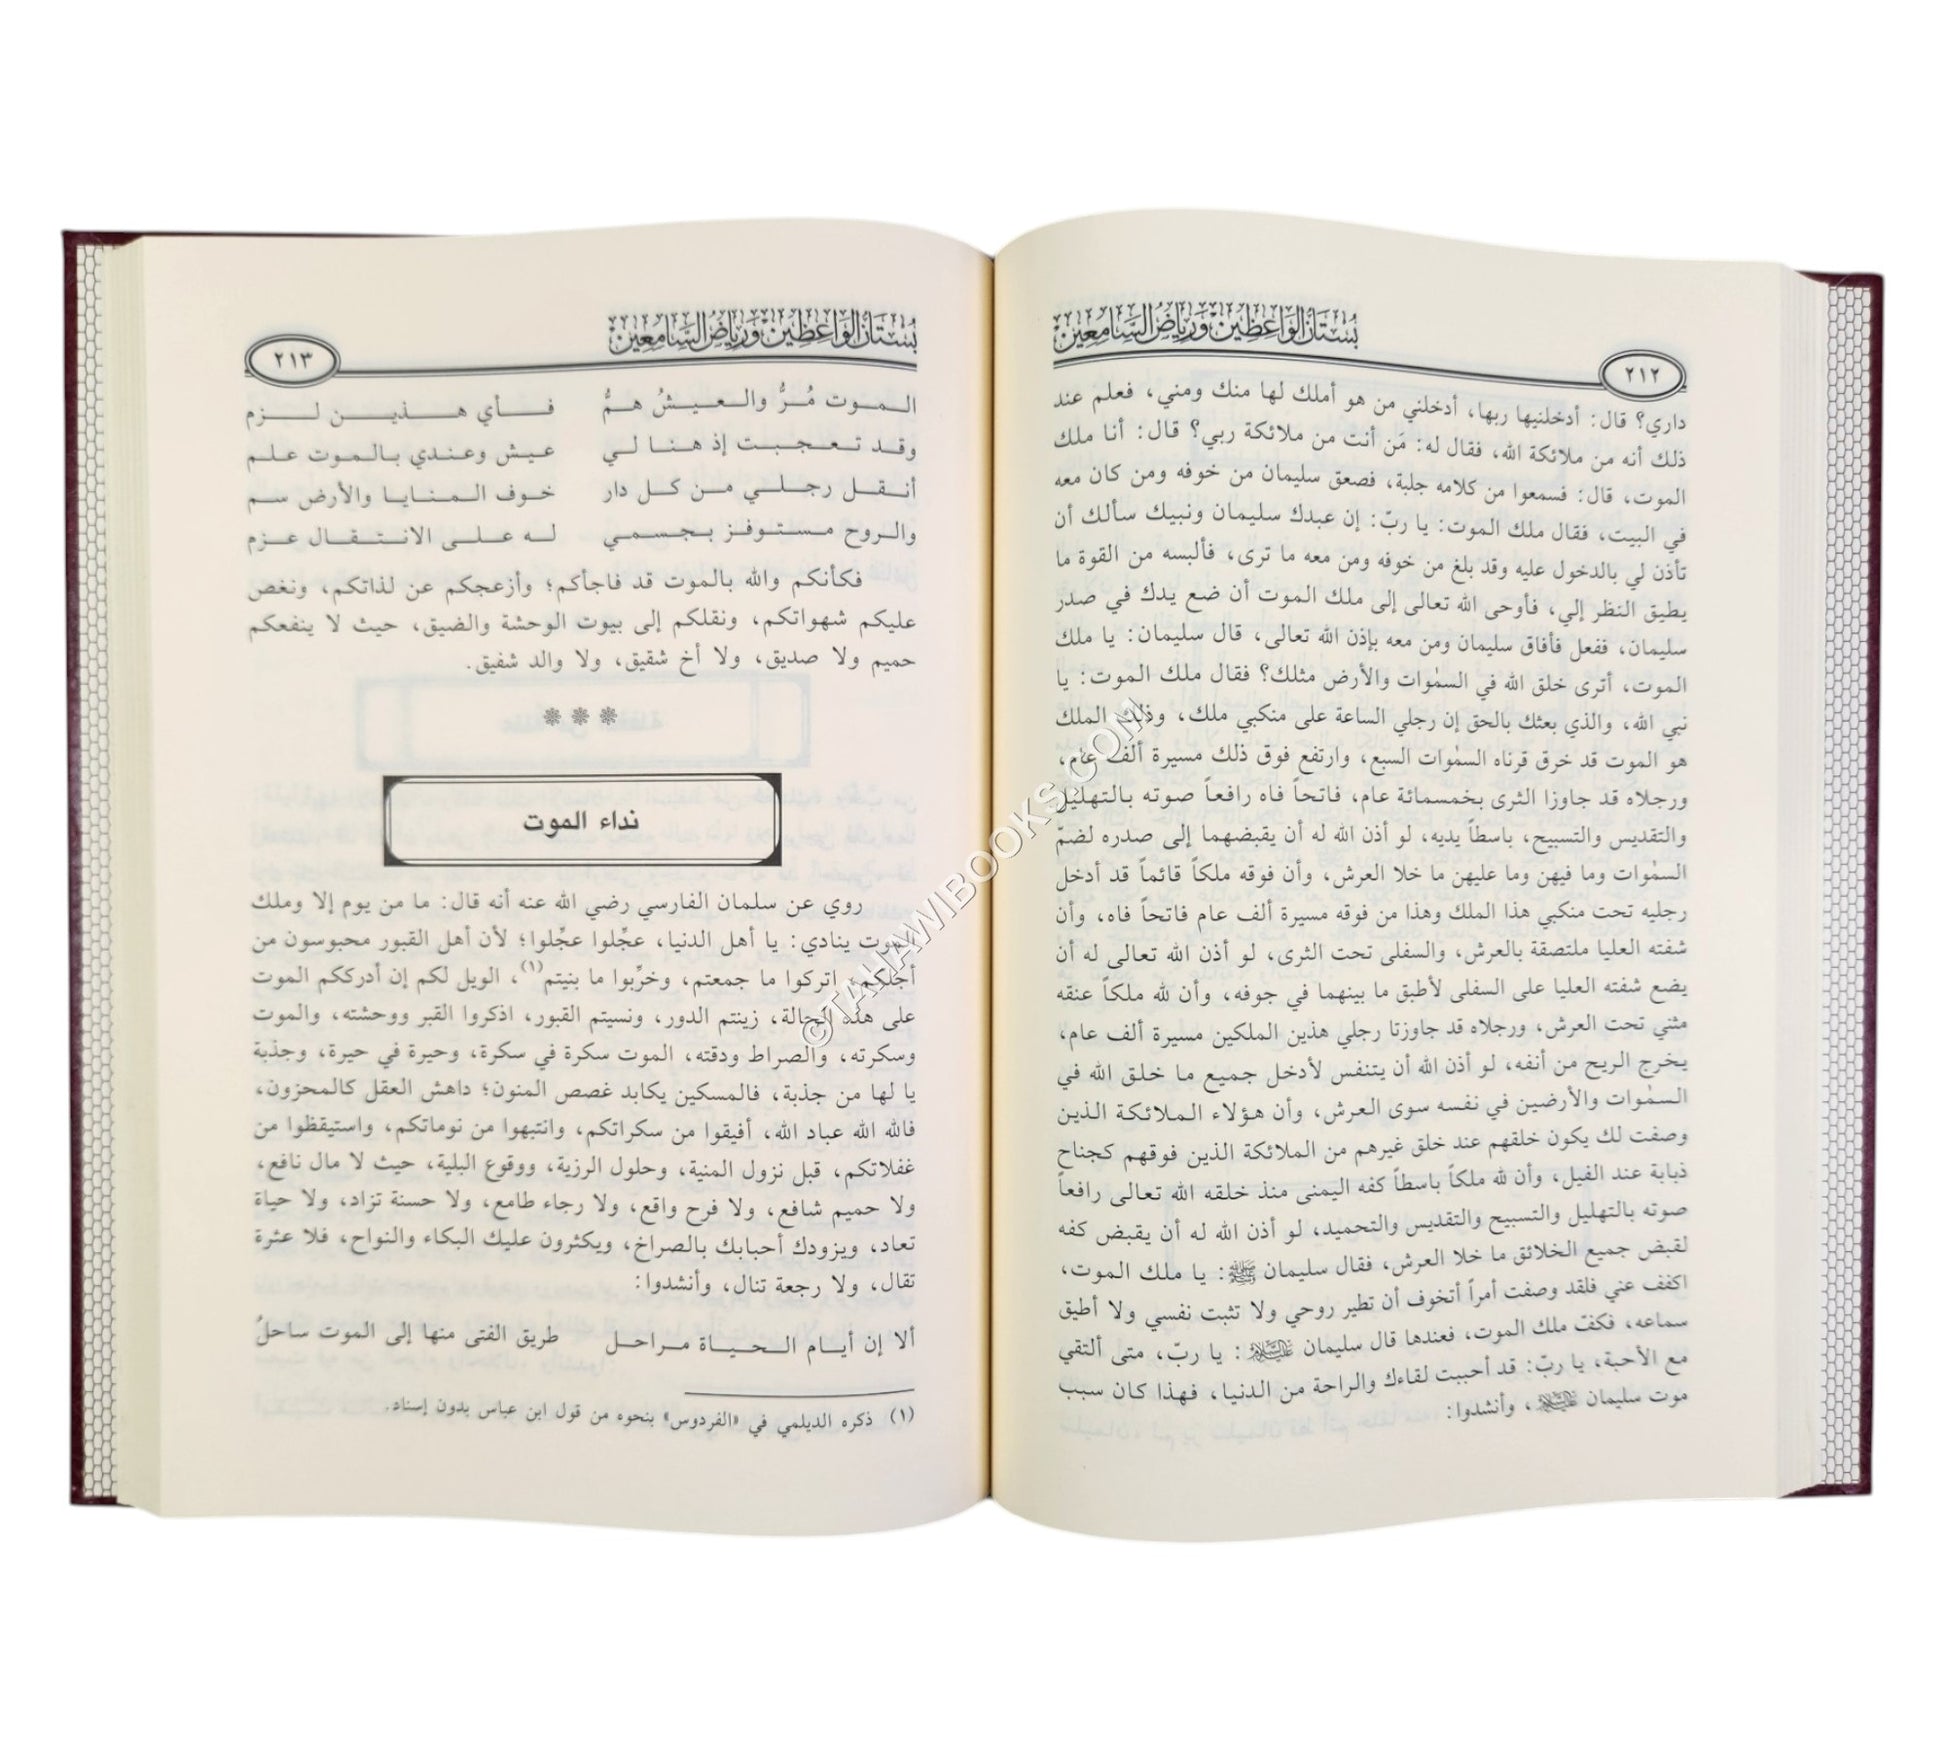 بُسْتَانُ الوَاعِظِينَ وَرِيَاضُ السَّامِعِينَ
٢١٢
داري؟ قال: أدخلنيها ربها، أدخلني من هو أملك لها منك ومني، فعلم عند
ذلك أنه من ملائكة الله، فقال له: مَن أنت من ملائكة ربي؟ قال: أنا ملك
الموت، قال: فسمعوا من كلامه جلبة، فصعق سليمان من خوفه ومن كان معه
في البيت، فقال ملك الموت: يا ربّ: إن عبدك سليمان ونبيك سألك أن
تأذن لي بالدخول عليه وقد بلغ من خوفه ومن معه ما ترى، فألبسه من القوة ما
يطيق النظر إلي، فأوحى الله تعالى إلى ملك الموت أن ضع يدك في صدر
سليمان، ففعل فأفاق سليمان ومن معه بإذن الله تعالى، قال سليمان: يا ملك
الموت، أترى خلق الله في السمٰوات والأرض مثلك؟ فقال ملك الموت: يا
نبي الله، والذي بعثك بالحق إن رجلي الساعة على منكبي ملك، وذلك الملك
هو الموت قد خرق قرناه السمٰوات السبع، وارتفع فوق ذلك مسيرة ألف عام،
ورجلاه قد جاوزا الثرى بخمسمائة عام، فاتحاً فاه رافعاً صوته بالتهليل
والتقديس والتسبيح، باسطاً يديه، لو أذن الله له أن يقبضهما إلى صدره لضمّ
السمٰوات وما فيهن وما عليهن ما خلا العرش، وأن فوقه ملكاً قائماً قد أدخل
رجليه تحت منكبي هذا الملك وهذا من فوقه مسيرة ألف عام فاتحاً فاه، وأن
شفته العليا ملتصقة بالعرش، والسفلى تحت الثرى، لو أذن الله تعالى له أن
يضع شفته العليا على السفلى لأطبق ما بينهما في جوفه، وأن لله ملكاً عنقه
مثني تحت العرش، ورجلاه قد جاوزتا رجلي هذين الملكين مسيرة ألف عام،
يخرج الريح من أنفه، لو أذن الله أن يتنفس لأدخل جميع ما خلق الله في
السمٰوات والأرضين في نفسه سوى العرش، وأن هؤلاء الملائكة الذين
وصفت لك يكون خلقهم عند خلق غيرهم من الملائكة الذين فوقهم كجناح
ذبابة عند الفيل، وأن لله ملكاً باسطاً كفه اليمنى منذ خلقه الله تعالى رافعاً
صوته بالتهليل والتسبيح والتقديس والتحميد، لو أذن الله له أن يقبض كفه
لقبض جميع الخلائق ما خلا العرش، فقال سليمان ﷺ: يا ملك الموت،
اكفف عني فلقد وصفت أمراً أتخوف أن تطير روحي ولا تثبت نفسي ولا أطيق
سماعه، فكفّ ملك الموت، فعندها قال سليمان عليه السلام: يا ربّ، متى ألتقي
مع الأحبة، يا ربّ: قد أحببت لقاءك والراحة من الدنيا، فهذا كان سبب
موت سليمان عليه السلام، وأنشدوا:
بُسْتَانُ الوَاعِظِينَ وَرِيَاضُ السَّامِعِينَ
٢١٣
الموت مُرٌّ والعيشُ همُّ فأي هذين لزم
وقد تعجبت إذ هنا لي عيش وعندي بالموت علم
أنقل رجلي من كل دار خوف المنايا والأرض سم
والروح مستوفز بجسمي له على الانتقال عزم
فكأنكم والله بالموت قد فاجأكم؛ وأزعجكم عن لذاتكم، ونغص
عليكم شهواتكم، ونقلكم إلى بيوت الوحشة والضيق، حيث لا ينفعكم
حميم ولا صديق، ولا أخ شقيق، ولا والد شفيق.
***
نداء الموت
روي عن سلمان الفارسي رضي الله عنه أنه قال: ما من يوم إلا وملك
الموت ينادي: يا أهل الدنيا، عجِّلوا عجِّلوا؛ لأن أهل القبور محبوسون من
أجلكم، اتركوا ما جمعتم، وخرِّبوا ما بنيتم(١)، الويل لكم إن أدرككم الموت
على هذه الحالة، زينتم الدور، ونسيتم القبور، اذكروا القبر ووحشته، والموت
وسكرته، والصراط ودقته، الموت سكرة في سكرة، وحيرة في حيرة، وجذبة
يا لها من جذبة، فالمسكين يكابد غصص المنون؛ داهش العقل كالمحزون،
فالله الله عباد الله، أفيقوا من سكراتكم، وانتبهوا من نوماتكم، واستيقظوا من
غفلاتكم، قبل نزول المنية، وحلول الرزية، ووقوع البلية، حيث لا مال نافع،
ولا حميم شافع، ولا فرح واقع، ولا رجاء طامع، ولا حسنة تزاد، ولا حياة
تعاد، ويزودك أحبابك بالصراخ، ويكثرون عليك البكاء والنواح، فلا عثرة
تقال، ولا رجعة تنال، وأنشدوا:
ألا إن أيام الحياة مراحل طريق الفتى منها إلى الموت ساحلُ
(١) ذكره الديلمي في «الفردوس» بنحوه من قول ابن عباس بدون إسناد.
©TAHAWIBOOKS.COM